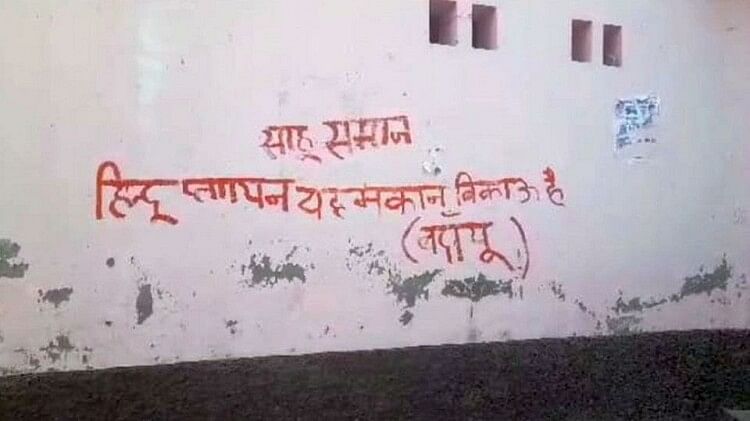 साहू समाज
हिन्दू प्लायन यह मकान बिकाऊ है
(बदाँयू)